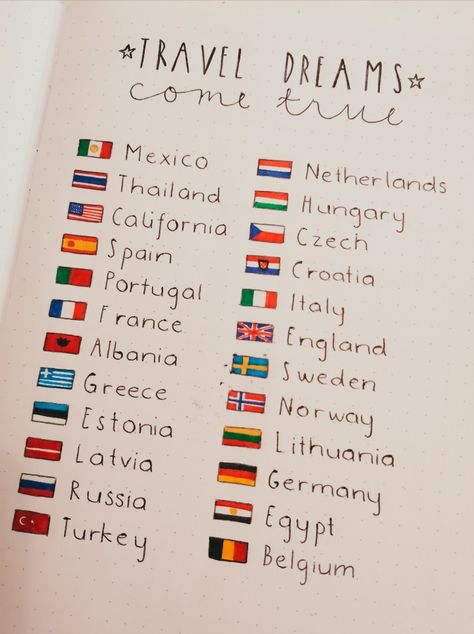 ☆TRAVEL DREAMS☆
come true
Mexico
Thailand
California
Spain
Portugal
France
Albania
Greece
Estonia
Latvia
Russia
Turkey
Netherlands
Hungary
Czech
Croatia
Italy
England
Sweden
Norway
Lithuania
Germany
Egypt
Belgium